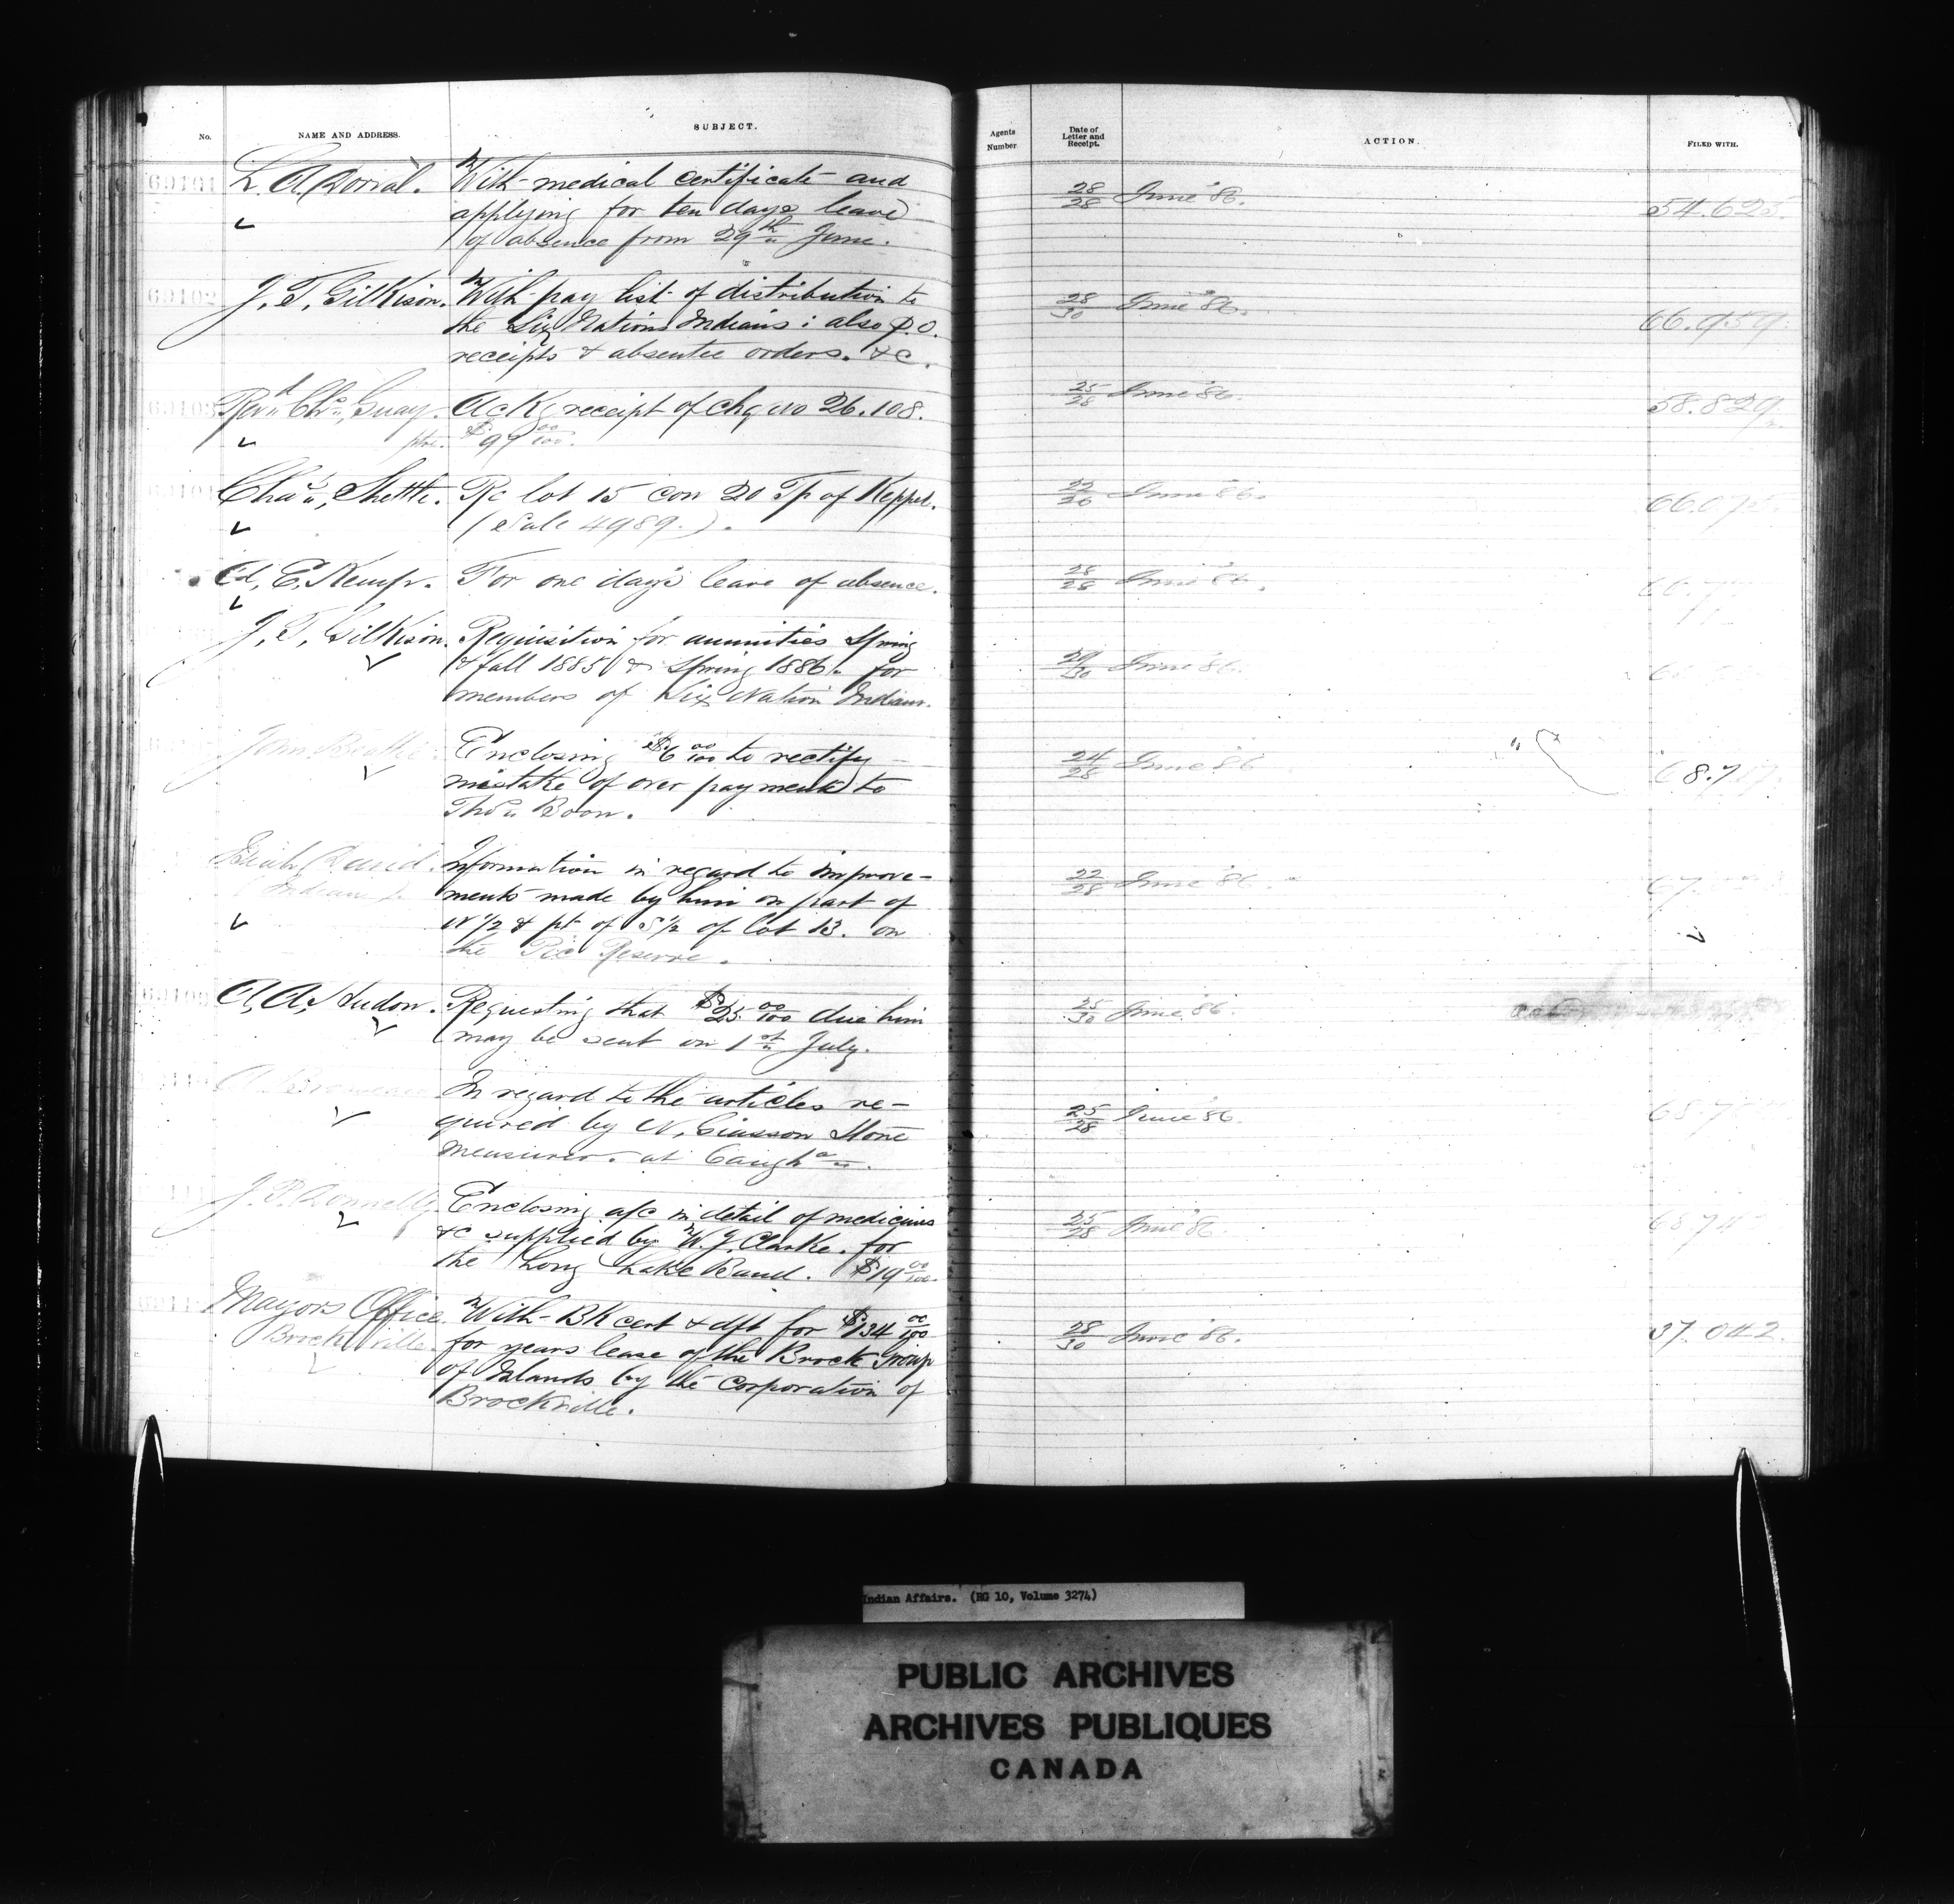 No. NAME AND ADDRESS. SUBJECT. Agents Number Date of Letter and Receipt. ACTION. FILED WITH.
69101 L. A. Dorval. With medical certificate and 28/28 June '86. 54.625.
applying for ten days leave
of absence from 29th June.
69102 J. T. Gilkison. With pay list of distribution to 28/30 June '86. 66.959
the Six Nations Indians; also P.O.
receipts & absentee orders. &c.
69103 Revd Chs. Guay. Ackg receipt of chq no 26.108. 25/28 June '86. 58.829
ptre. $99 00/100.
Chas, Shettle. Re lot 15 con 20 Tp of Keppel. 22/26 June '86.
(Sale 4989.).
Ed, E. Kemp. For one day's leave of absence. 28/28 June '86.
J. T. Gilkison. Requisition for annuities Spring
& fall 1885 & Spring 1886. for 29/30 June '86.
members of Six Nation Indians.
John Beattie. Enclosing $6 00/100 to rectify 24/28 June '86
mistake of over payment to
Thos Boon.
David. Information in regard to improve- 22/28 June '86.
Indian ments made by him on part of
N 1/2 & pt of S 1/2 of lot 13. on
the Reserve.
A, A, Hudon. Requesting that $25 00/100 due him 25/30 June '86.
may be sent on 1st July.
In regard to the articles re- 25/28 June '86.
quired by N. Giasson Stone
measurer. at Caugha.
J. P. Donnelly. Enclosing a/c in detail of medicines 25/28 June '86
&c supplied by W. J. Clarke. for
the Long Lake Band. $19 00/100.
Mayors Office With Bk cert & dft for $134 00/100 28/30 June '86. 37.042.
Brockville. for years lease of the Brock Group
of Islands by the Corporation of
Brockville.
Indian Affairs. (RG 10, Volume 3274)
PUBLIC ARCHIVES
ARCHIVES PUBLIQUES
CANADA